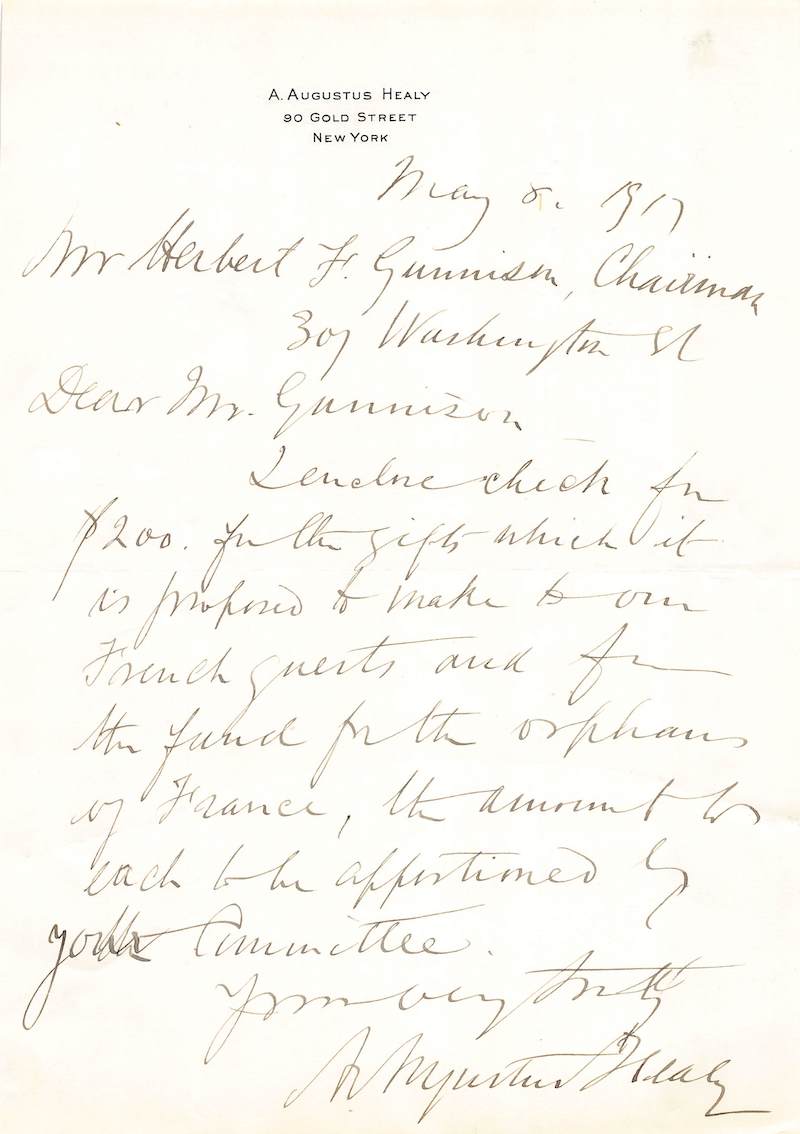 A. AUGUSTUS HEALY
90 GOLD STREET
NEW YORK
May 8. 1917
Mr Herbert F. Gunnison, Chairman
307 Washington St
Dear Mr. Gunnison
I enclose check for
$200. for the gifts which it
is proposed to make to our
French guests and for
the fund for the orphans
of France, the amount to
each to be apportioned by
your Committee.
Yours very truly
A Augustus Healy